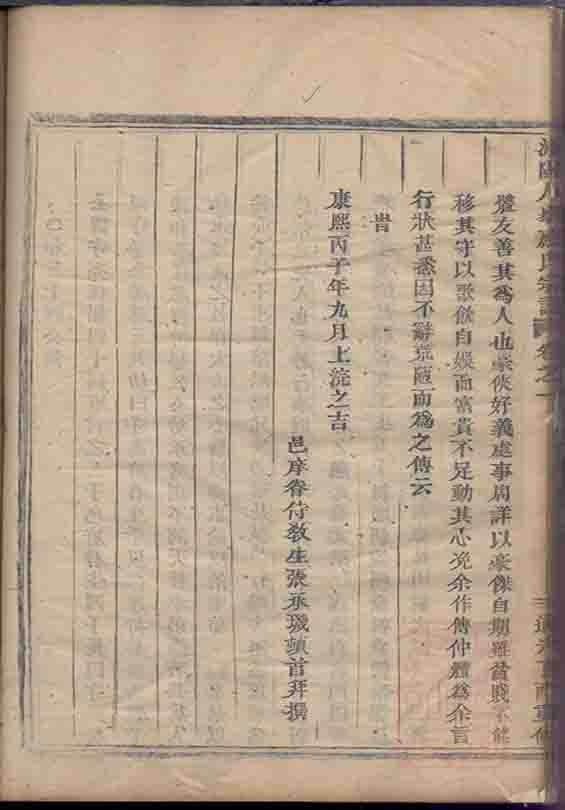 體友善其爲人也豪俠好義處事周詳以豪傑自期雖貧賤不能
移其守以歌飲自娛而富貴不足動其心浼余作傳仲體爲余言
行狀甚悉因不辭荒陋而爲之傳云
旹
康熙丙子年九月上浣之吉
邑庠眷侍教生張承璣頓首拜撰